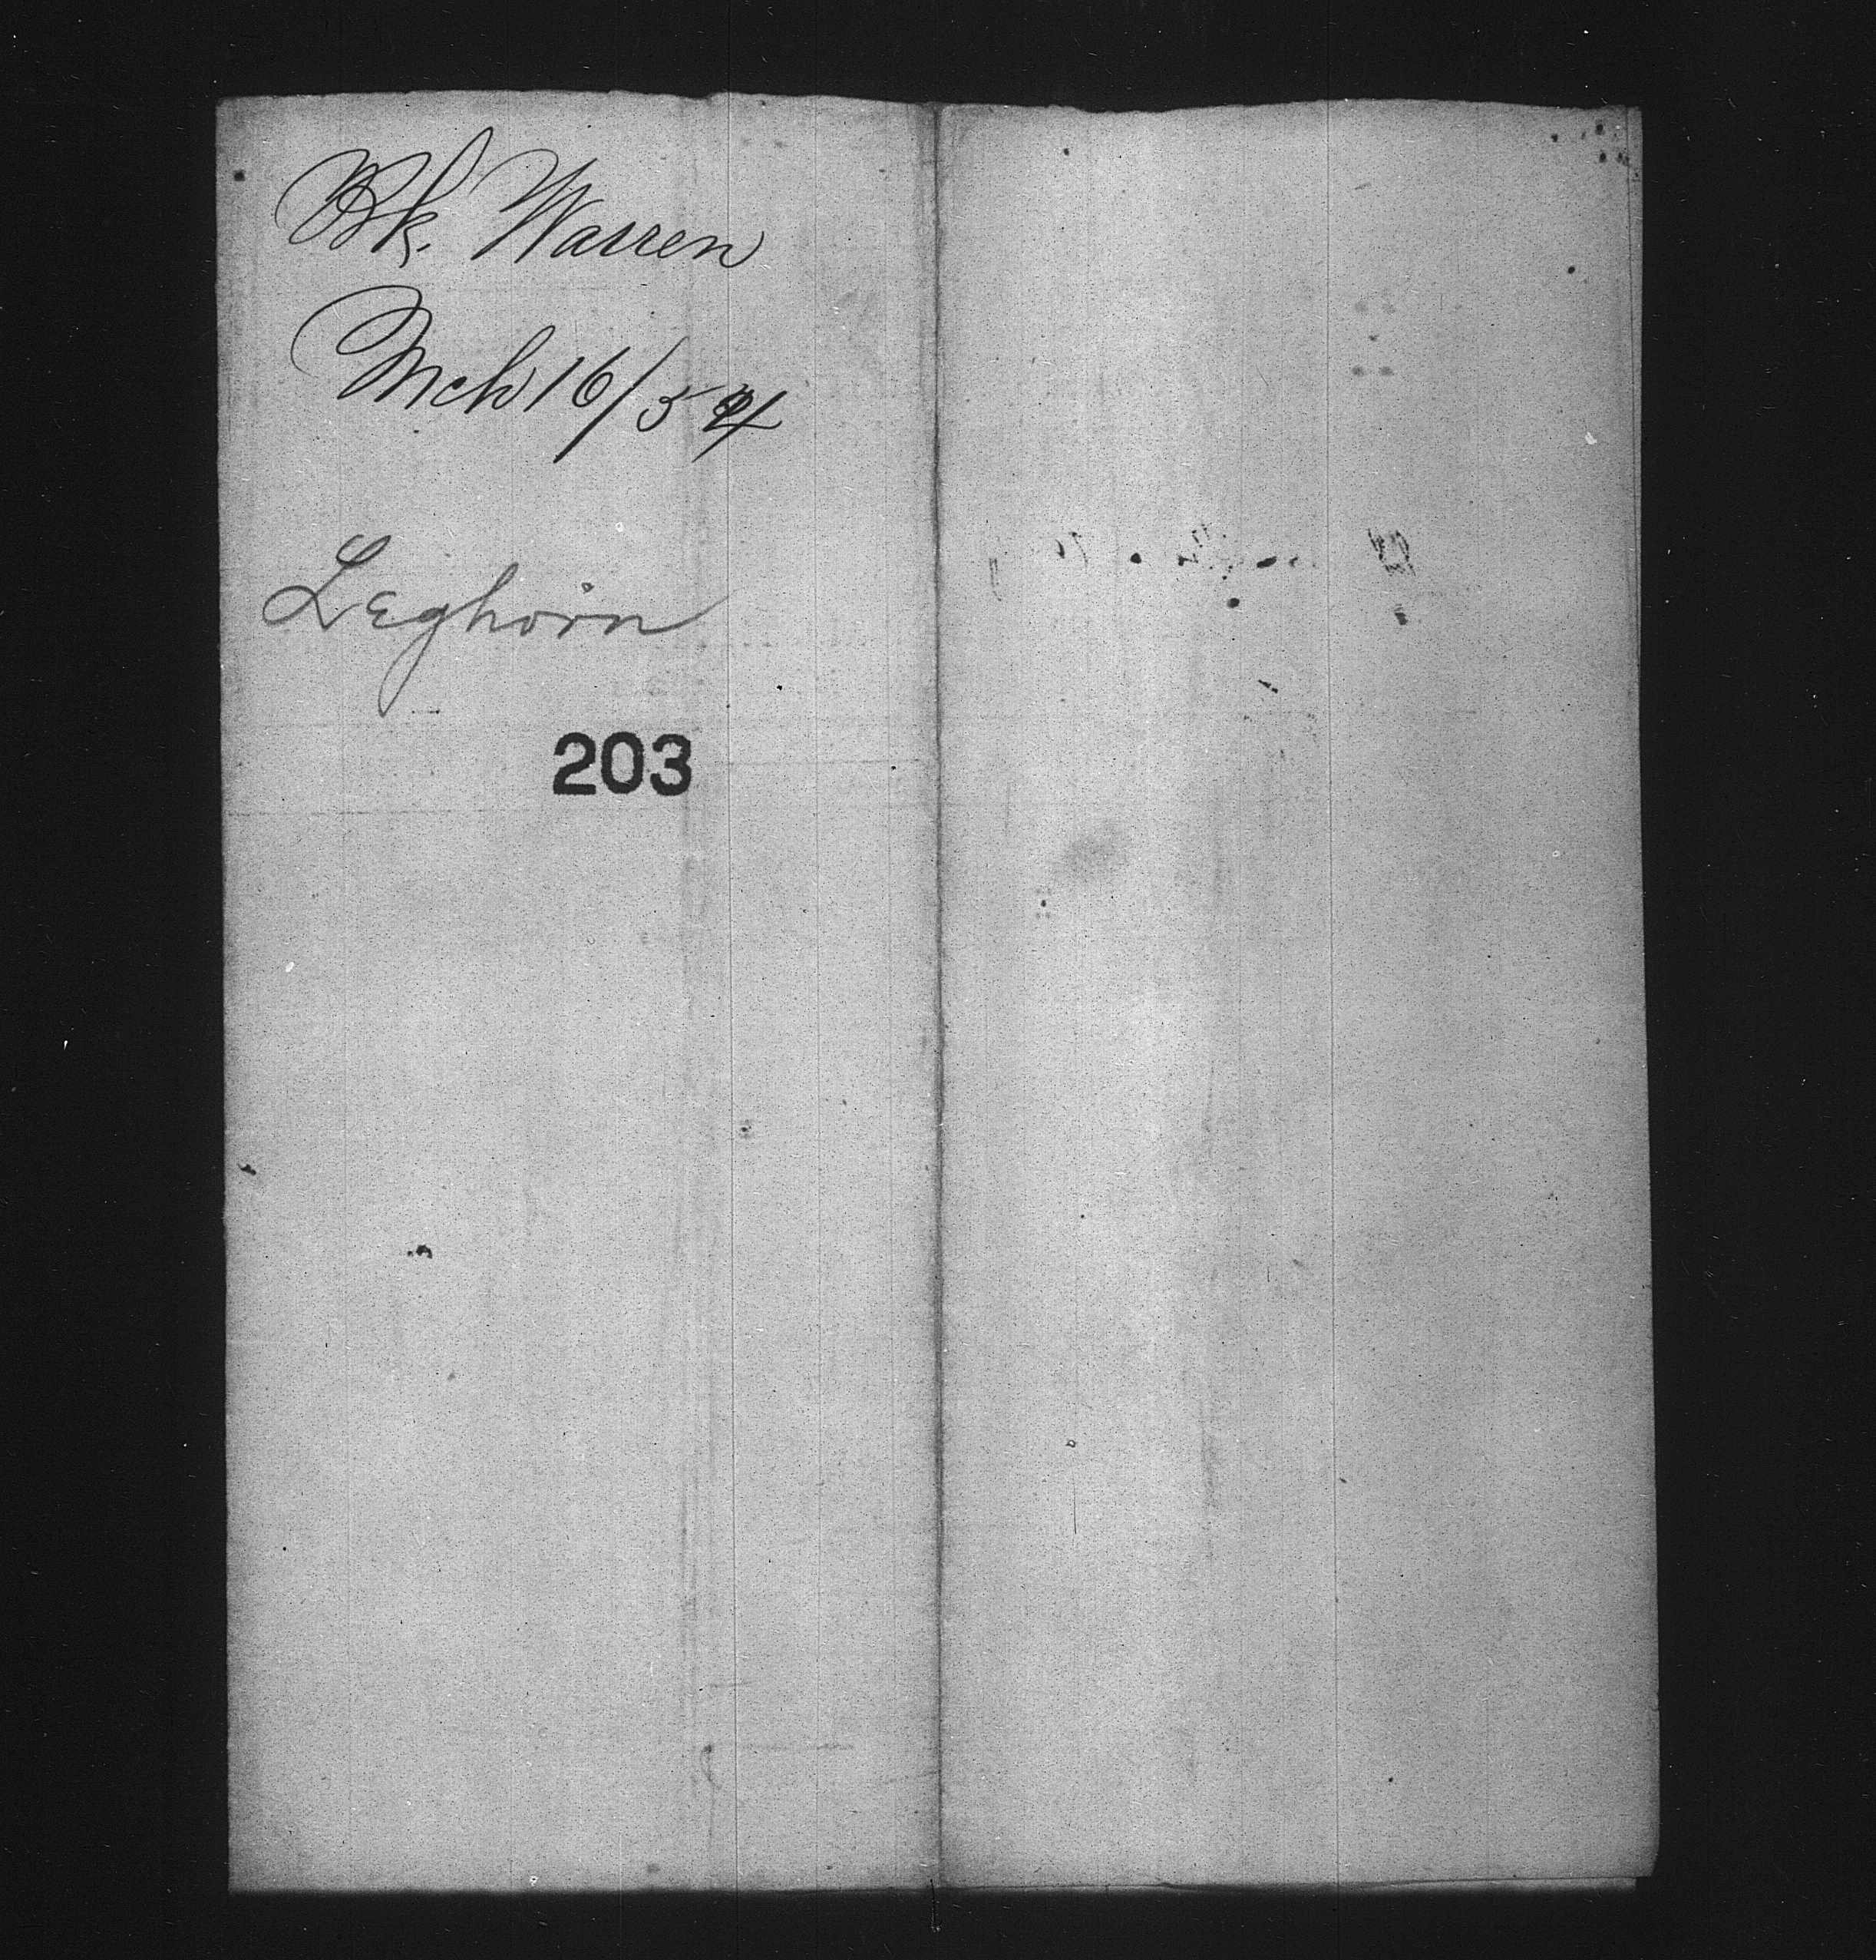 Bk. Warren
Mch 16/54
Leghorn
203